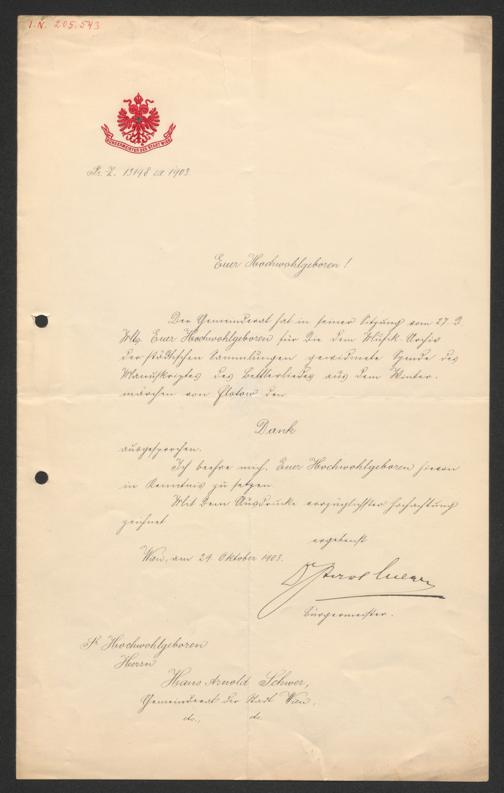 I.N. 205.543
BÜRGERMEISTER DER STADT WIEN
Pr. Z. 13198 ex 1903
Euer Hochwohlgeboren!
Der Gemeinderat hat in seiner Sitzung vom 27. d.
Mts. Euer Hochwohlgeboren für die dem Musik-Archiv
der städtischen Sammlungen gewidmete Spende des
Manuskriptes des Bettlerliedes aus dem Winter-
märchen von Flotow den
Dank
ausgesprochen.
Ich beehre mich, Euer Hochwohlgeboren hievon
in Kenntnis zu setzen.
Mit dem Ausdrucke vorzüglichster Hochachtung
zeichnet
ergebenst
Wien, am 29. Oktober 1903.
Dr Karl Lueger
Bürgermeister.
Sr Hochwohlgeboren
Herrn
Hans Arnold Schwer,
Gemeinderat der Stadt Wien,
etc., etc.